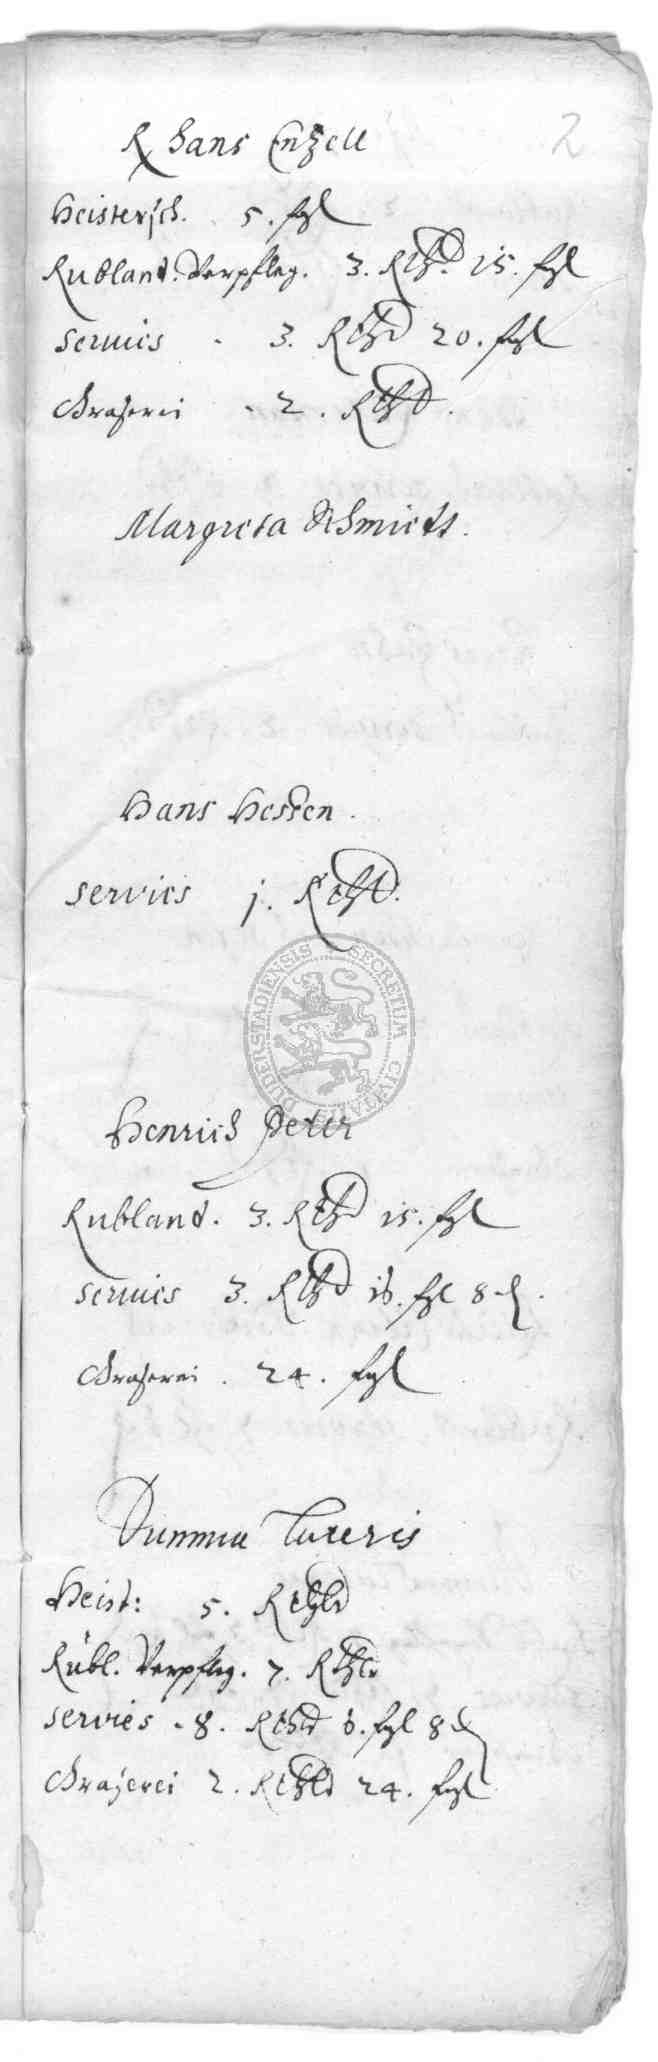 2
Hans Entzell
Heistersch. 5. fgl
Rubland. Verpfleg. 3. Rthl. 15. fgl
servies - 3. Rthl 20. fgl
Graserei - 2. Rthl.
Margreta Schmiets.
Hans Hessen.
servies j. Rthl.
DUDERSTADIENSIS SECRETUM CIVITATIS
Henrich Peter
Rubland. 3. Rthl 15. fgl
servies 3. Rthl 16. fgl 8 d.
Graserei. 24. fgl
Summa Lateris
Heist: 5. Rthlr
Rübl. Verpfleg. 7. Rthlr
servies - 8. Rthlr 6. fgl 8 d
Graserei 2. Rthlr 24. fgl